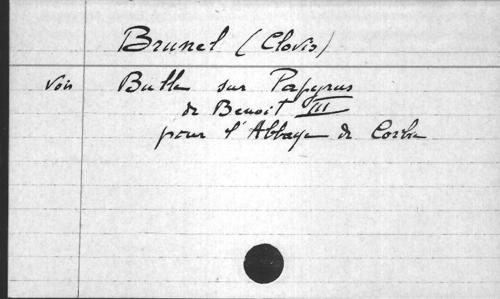 Brunel (Clovis)
Voir Bulle sur Papyrus
de Benoit III
pour l'Abbaye de Corbie